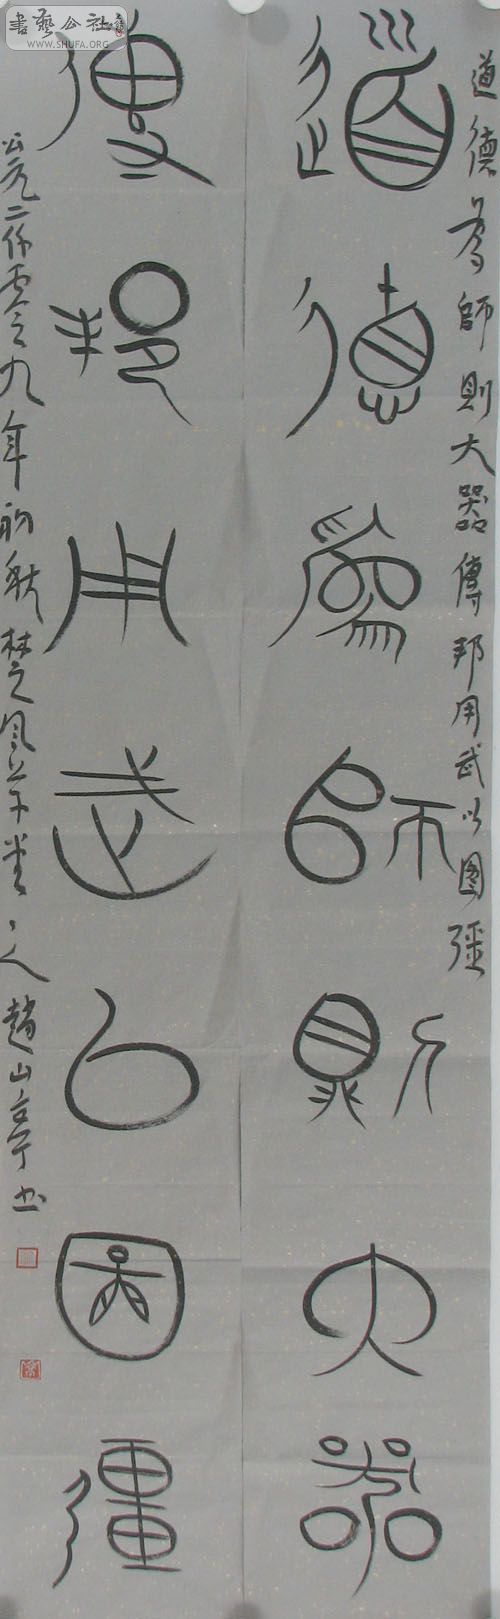 道德為師則大器傳邦用武以圖強
道德為師則大器
傳邦用武以圖彊
公元二仟零零九年初秋楚風草堂主人趙山亭書
書藝公社
WWW.SHUFA.ORG